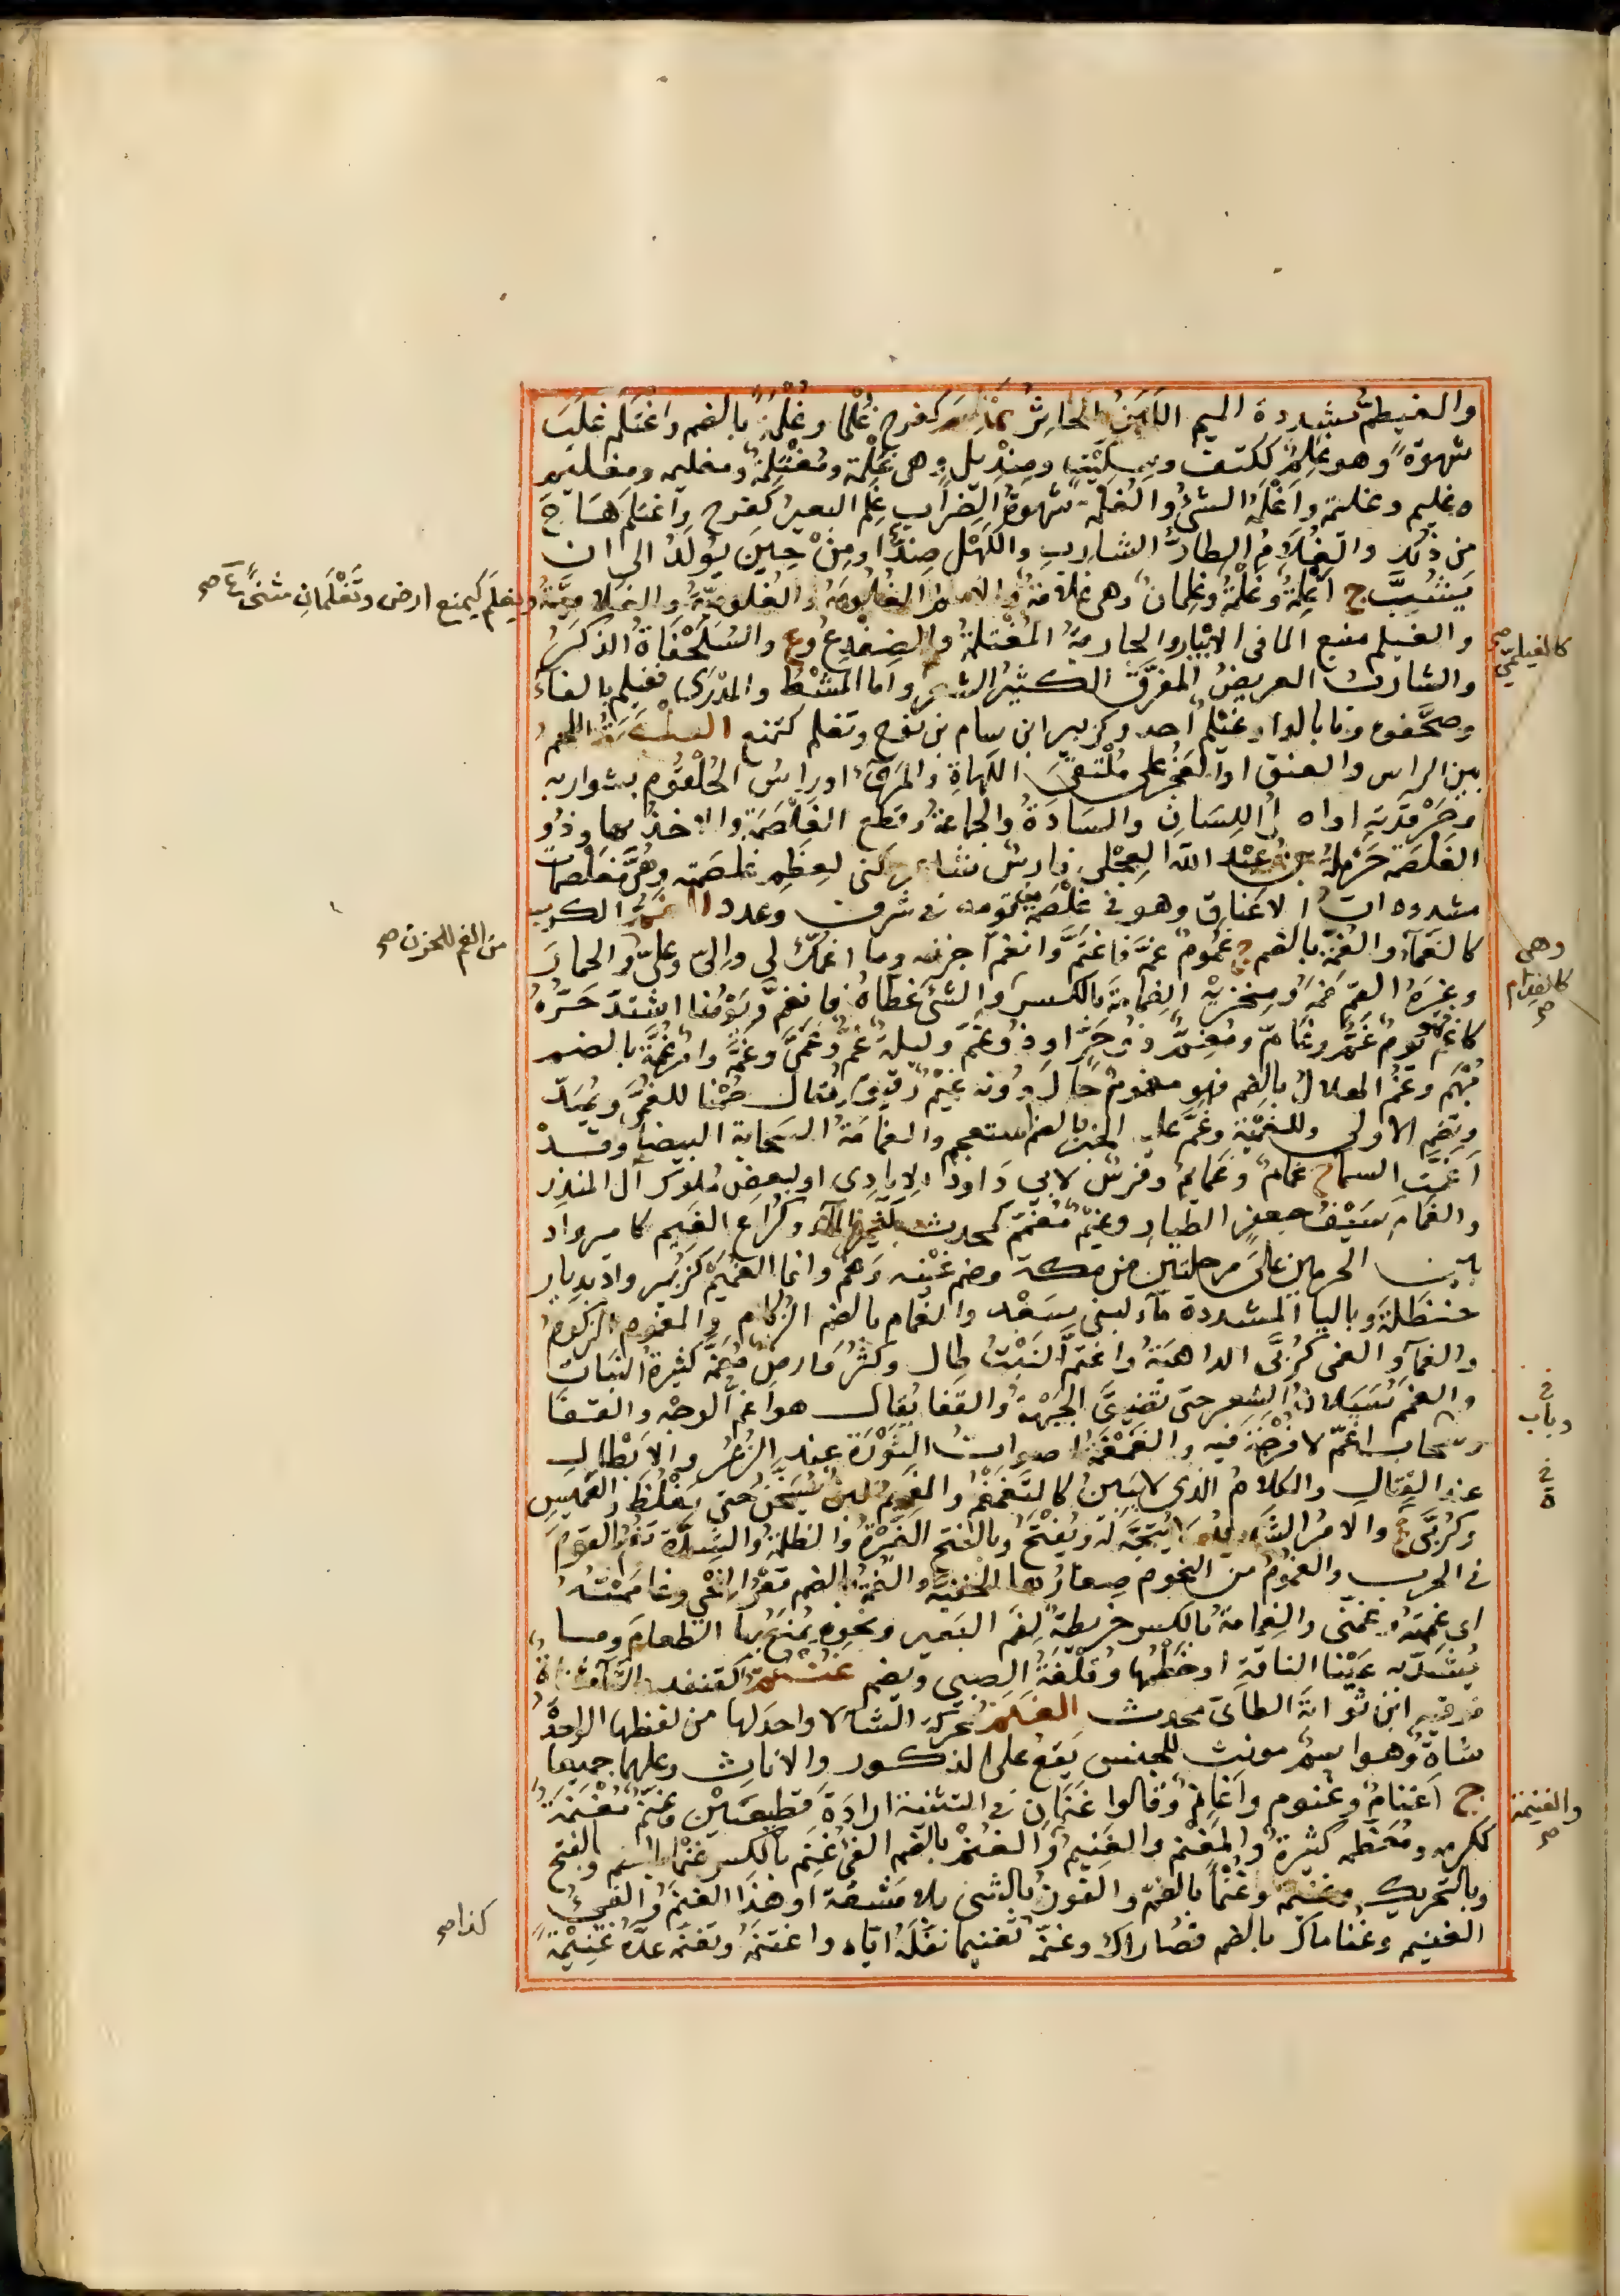 والغيطم مشددة الميم اللبن الخاثر غلم كفرح غلما وغلمة بالضم واغتلم غلب
شهوة وهو غلم ككتف وسكيت ومنديل وهي غلمة ومغتلمة ومغليمة ومغليم
وغليم وغليمة واغلمه الشئ والغلمة شهوة الضراب غلم البعير كفرح واغتلم هاج
من ذلك والغلام الطار الشارب والكهل ضد او من حين يولد الى ان
يشيب ج اغلمة وغلمة وغلمان وهي غلامة والاسم الغلومة والغلومية والغلامية
ويغلم كيمنع ارض وتغلمان مثنى ع صح
والغيلم منبع الما في الابار والجارية المغتلمة والضفدع وع والسلحفاة الذكر
كالغيلمي صح
والشاب العريض المفرق الكثير الشعر واما المشط والمدرى فغيلم بالفاء
وصحفوه وما بالدار غيلم احد وكزبير ابن سام بن نوح وتغلم كتمنع الغلصمة اللحم
بين الراس والعنق او العجر على ملتقى اللهاة والمرئ او راس الحلقوم بشواربه
وحرقدته او اصل اللسان والسادة والجماعة وقطع الغلصمة والاخذ بها وذو
الغلصمة حرملة بن عبد الله العجلي فارس شاعر كنى لعظم غلصمته وهن مغلصمات
مشدودات الاعناق وهو في غلصمة من قومه في شرف وعدد الغم الكرب
كالغماء والغمة بالضم ج غموم غمه فاغتم وانغم احزنه وما اغمك لي والي وعلي والحمار
من الغم للحزن صح
وغيره القم فمه ومنخريه الغمامة بالكسر والشئ غطاه فانغم ويومنا اشتد حره
وهي كالفدام صح
كاغم يوم غم وغام ومغم ذو حر او ذو غم وليلة غم وغمى وغمة وامر غمة بالضم
مبهم وغم الهلال بالضم فهو مغموم حال دونه غيم رقيق ويقال صمنا للغمى ويمد
وتضم الاولى وللغمية وغم عليه الخبر بالضم استعجم والغمامة السحابة البيضا وقد
اغمت السما ج غمام وغمايم وفرس لابي داود الايادي او لبعض ملوك آل المنذر
والغمام سيف جعفر الطيار وغيم مغمم كمحدث كثير الماء وكراع الغميم كامير واد
بين الحرمين على مرحلتين من مكة وضم غينه وهم وانما الغميم كزبير واد بديار
حنظلة وباليا المشددة ماء لبني سعد والغمام بالضم الزكام والمغموم المزكوم
والغماء والغمى كربى الداهية واغتم النبت طال وكثر وارض مغمة كثيرة النبات
والغمم سيلان الشعر حتى تضيق الجبهة والقفا يقال هو اغم الوجه والقفا
وسحاب اغم لا فرجة فيه والغمغمة اصوات الثورة عند الذعر والابطال
عند القتال والكلام الذي لا يبين كالتغمغم والغميم لبن يسخن حتى يغلظ والغميس
وكربى ع والامر الشديد لا يتجه له ويفتح وبالفتح الغبرة والظلمة والشدة تغم القوم
في الحرب والغموم من النجوم صغارها الخفية والغمة بالضم قعر النحي وغاممته
اي غممته وغمني والغمامة بالكسر خريطة لفم البعير ونحوه يمنع بها الطعام وما
يشد به عينا الناقة او خطمها وقلفة الصبي ويضم غنثم كقنفذ
ابن ثوابة الطائي محدث الغنم محركة الشاء لا واحد لها من لفظها الواحدة
شاة وهو اسم مونث للجنس يقع على الذكور والاناث وعليهما جميعا
ج اغنام وغنوم واغانم وقالوا غنمان في التثنية ارادة قطيعتين وغنم مغنمة
والغنيمة صح
ككرمة ومعظمة كثيرة والمغنم والغنيم والغنم بالضم الفئ غنم بالكسر غنما بالضم وبالفتح
وبالتحريك وغنيمة وغنما بالضم والفوز بالشئ بلا مشقة او هذا الغنم والفئ
الغنيمة وغناماك بالضم قصاراك وغنمه تغنيما نفله اياه واغتنمه وتغنمه عده غنيمة
كذا صح